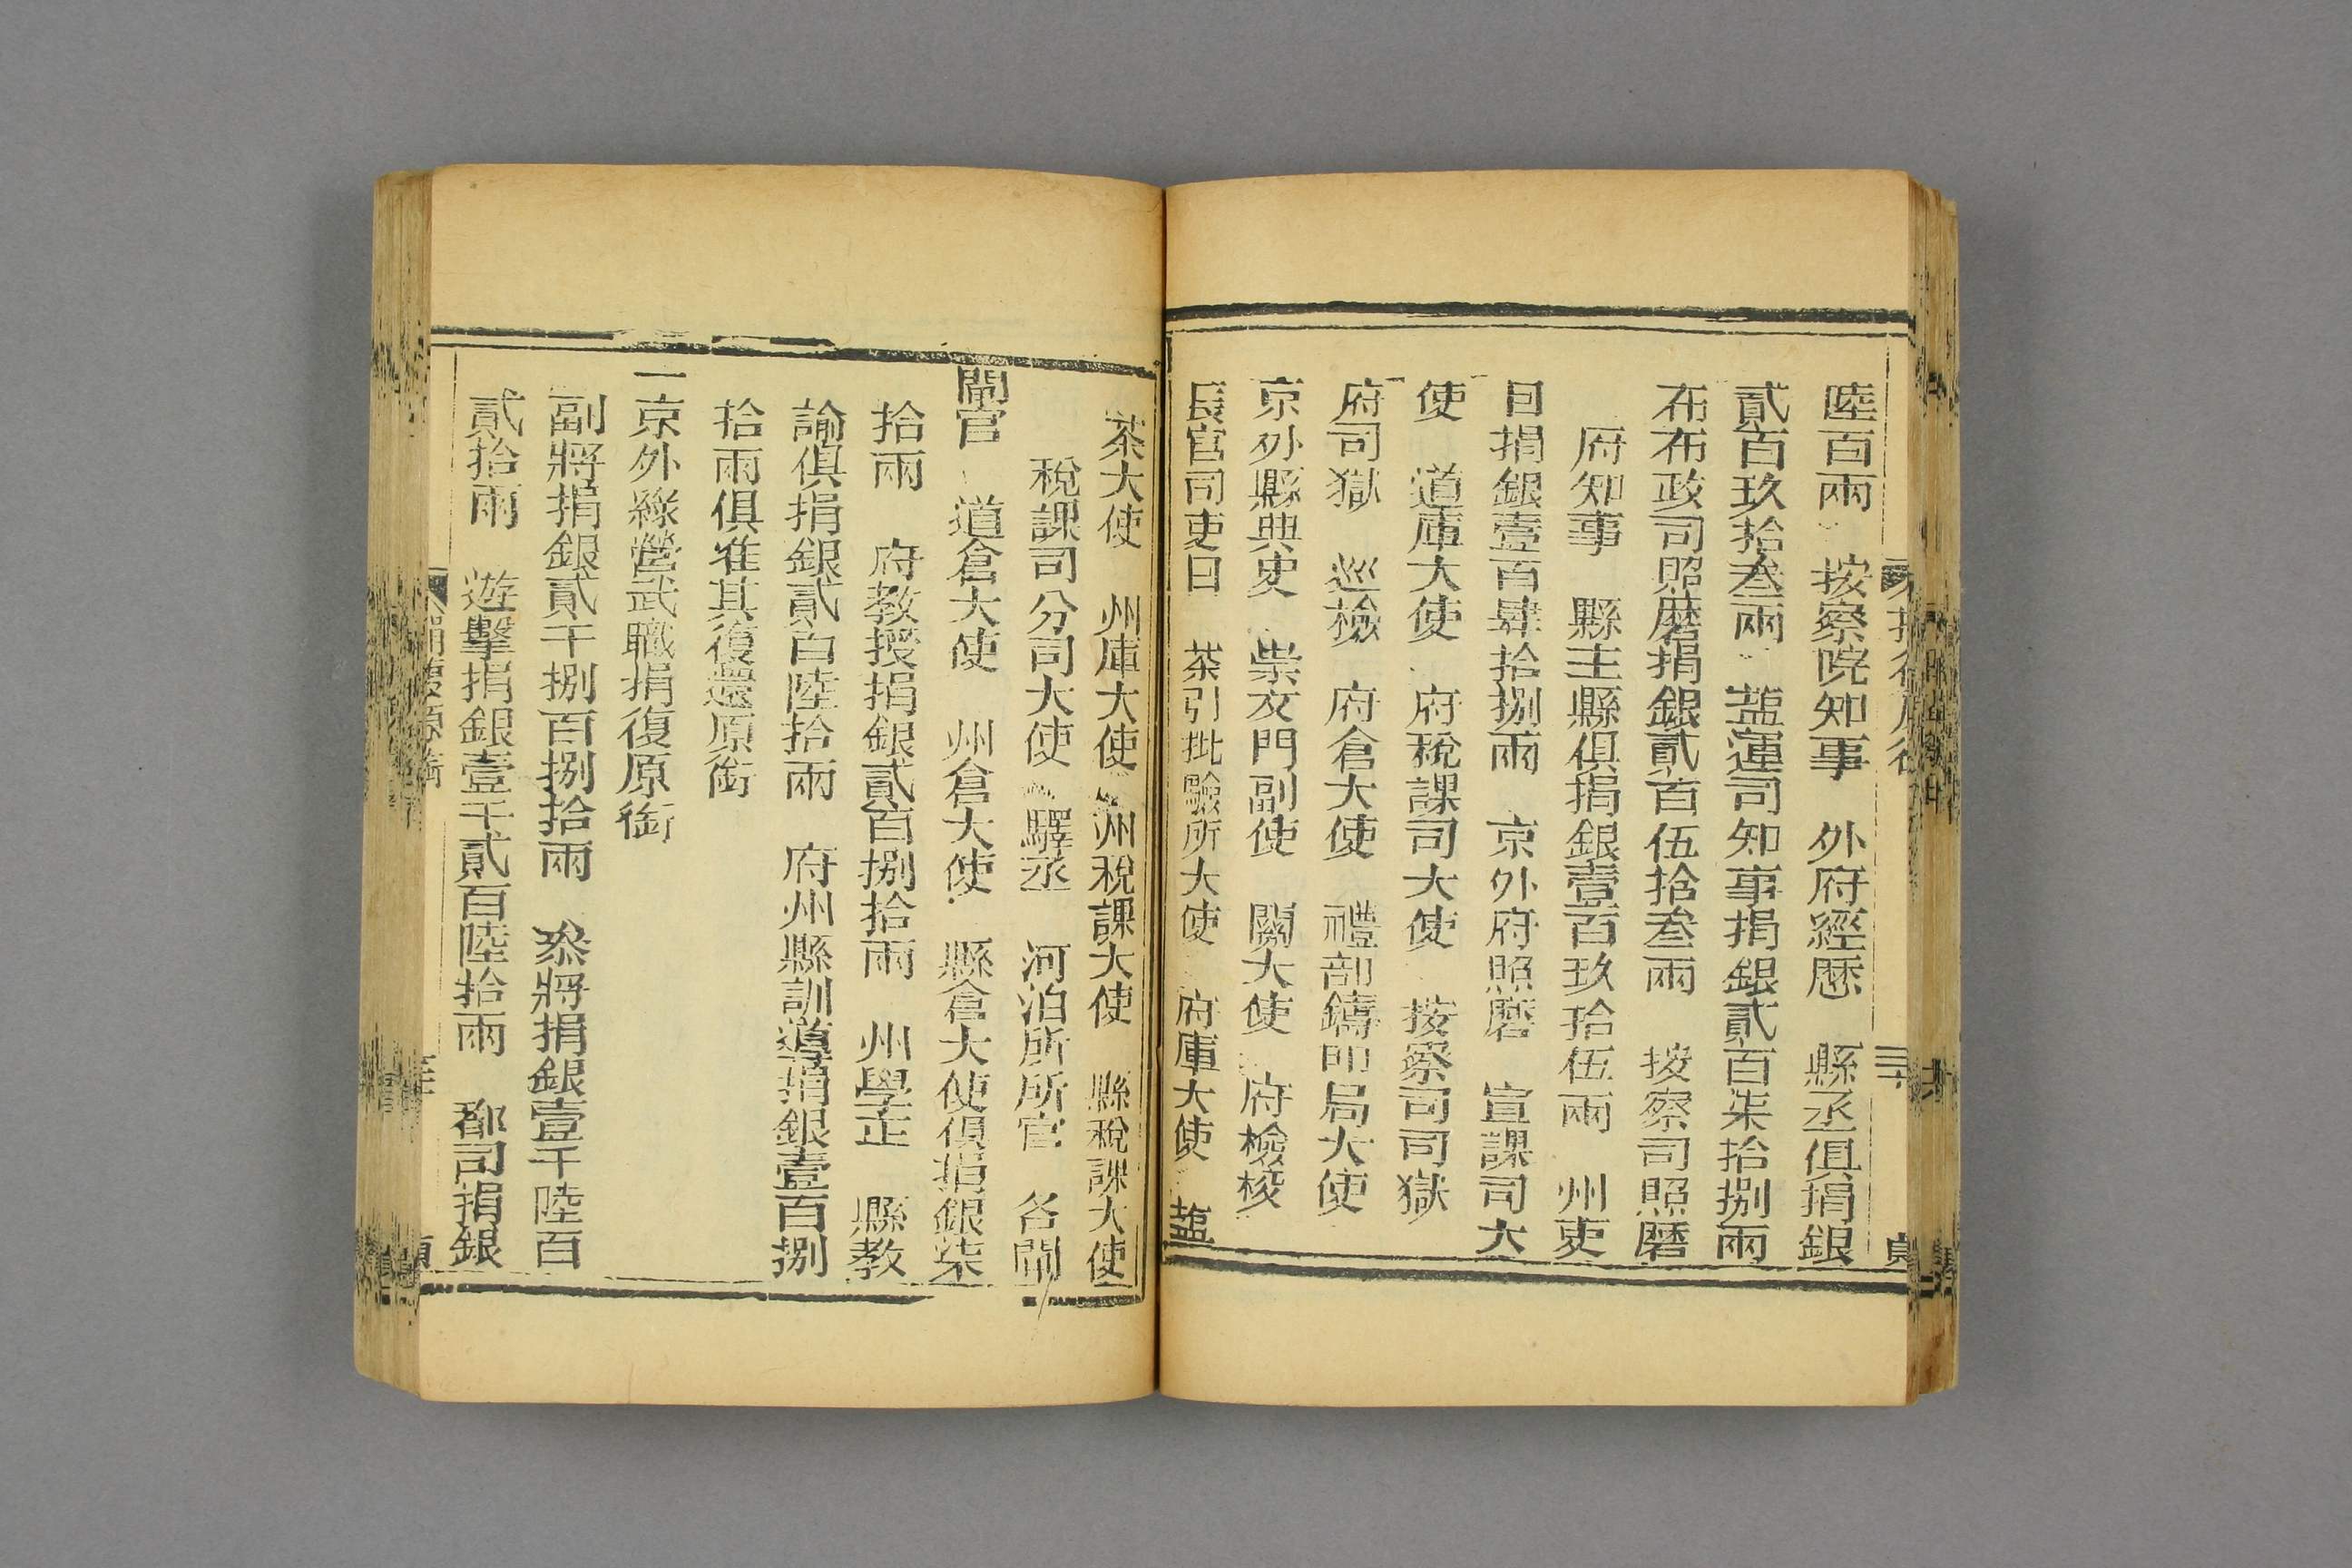 陸百兩　按察院知事　外府經歷　縣丞俱捐銀
貳百玖拾叁兩　鹽運司知事捐銀貳百柒拾捌兩
布布政司照磨捐銀貳百伍拾叁兩　按察司照磨
府知事　縣主縣俱捐銀壹百玖拾伍兩　州吏
目捐銀壹百肆拾捌兩　京外府照磨　宣課司大
使　道庫大使　府稅課司大使　按察司司獄
府司獄　巡檢　府倉大使　禮部鑄印局大使
京外縣典史　崇文門副使　關大使　府檢校
長官司吏目　茶引批驗所大使　府庫大使　鹽
茶大使　州庫大使　州稅課大使　縣稅課大使
稅課司分司大使　驛丞　河泊所所官　各閘
閘官　道倉大使　州倉大使　縣倉大使俱捐銀柒
拾兩　府教授捐銀貳百捌拾兩　州學正　縣教
諭俱捐銀貳百陸拾兩　府州縣訓導捐銀壹百捌
拾兩俱准其復還原銜
一京外綠營武職捐復原銜
副將捐銀貳千捌百捌拾兩　叅將捐銀壹千陸百
貳拾兩　遊擊捐銀壹千貳百陸拾兩　都司捐銀